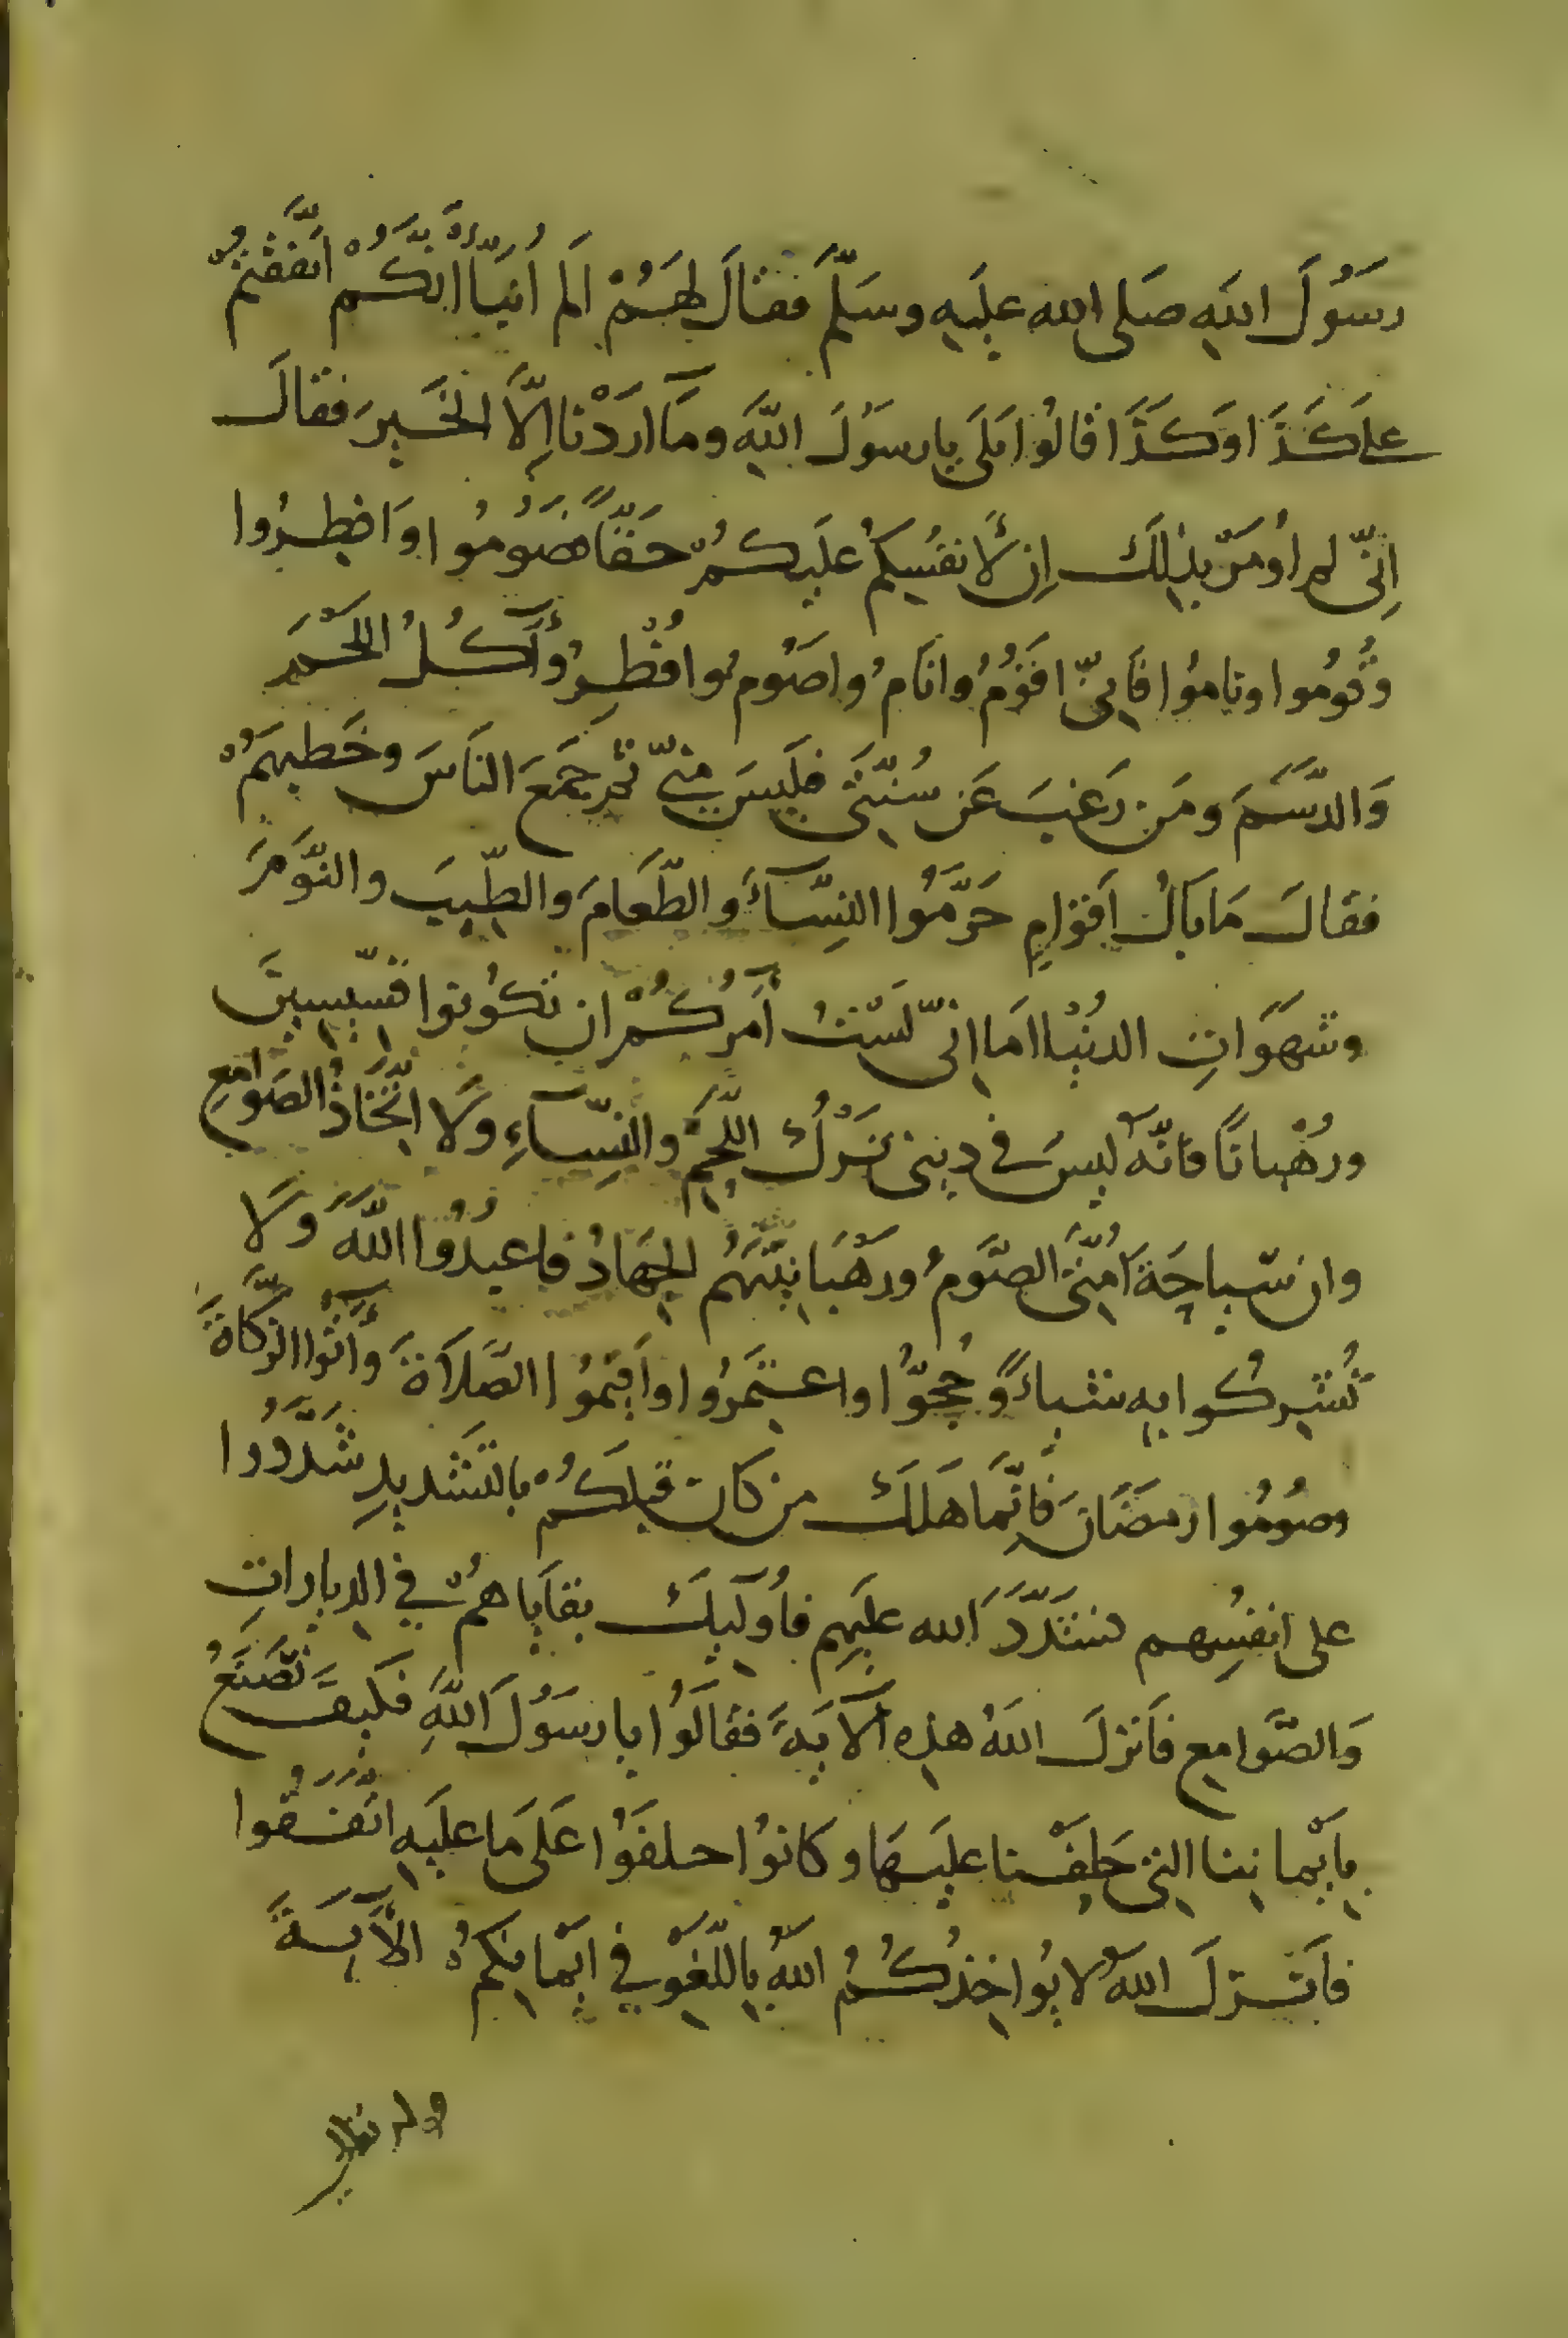 رَسُولَ اللهِ صَلى الله عليَهِ وسَلَّمَ فقالَ لهَمُ الَم اُنَبَّأ اَنَّكُمْ اتَّفَقْتُمْ
على كَذَا وَكَذَا قالُوا بَلَى يارسَوُلَ اللهِ ومَآ ارَدْنا اِلَّا الخَيرَ فقالَ
اِنّى لم اُومَرْ بِذٰلِكَ اِن لِاَنفُسِكُمْ عَليَكمُ حَقًّا فصَوُمُوا وَافطِرُوا
وَقُومُوا ونامُوا فَاِنىّ اقوَمُ وانَامُ واصَوُم وافُطِرُ وآكُلُ اللَحْمَ
وَالدَّسَمَ ومَن رَغبَ عَن سُنَّتى فلَيسَ مِنىّ ثم جَمَعَ الناَسَ وخَطبهَمُ
فقالَ مَا بَالُ اَقوَامٍ حَرَّمُوا النِسَّآءَ والطَّعَامَ والطِّيبَ والنَّوَمَ
وشَهَوَاتِ الدُنْيا امَا اِنىّ لَسَتُ آمُرُكُمْ ان تكوُنوا قسِّيسِينَ
ورُهْبانًا فانَّهُ ليسَ فى دِينى تَرْكُ اللَّحِمَ والنِسَّآءِ وَلَا اتِّخَاذُ الصَوامِع
وان سّياحَةَ اُمَّتىَ الصَّوَمُ ورَهْبَانِيَّتَهُم الجِهَادُ فاعبُدُوا اللهَ وَلَا
تُشِركُوا بِهِ شَياءً وَحُجُّوا واعتَمِرُوا وَاَقيِمُوا الصَّلَاةَ وَآتُوا الزكَّاةَ
وصوُمُوا رمَضَانَ فَاِنَّمَا هَلَكَ من كان قبلَكُمْ بالتَشَديدِ شَدَّدُوا
على انفسُهِم فشَدَّدَ الله عليَهِم فاُولَٓئِكَ بقاَياهُمْ في الديارِاتِ
وَالصَّوَامِع فاَنزلَ اللهُ هذِه الآيَةَ فقالَوُا يا رسَوُلَ اللهِ فكَيفَ نَصَنَعُ
بِاَيْماننِا التِى حَلِفَنْا عليَهَا وكانوُا حلفَوُا عَلَى مَا عليَهِ اتَّفَقُوا
فاَنَزلَ اللهُ لا يُوَاخِذُكُمُ اللهُ بِاللَّغِوْ في ايَمْانِكمُ الآيَةَ